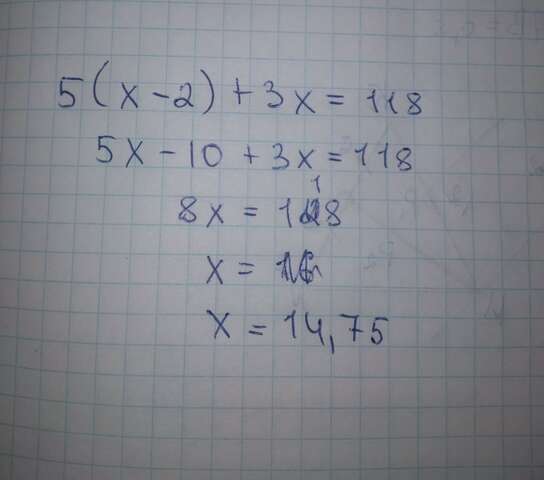 5(x-2)+3x=118
5x-10+3x=118
8x=118
x=
x=14,75